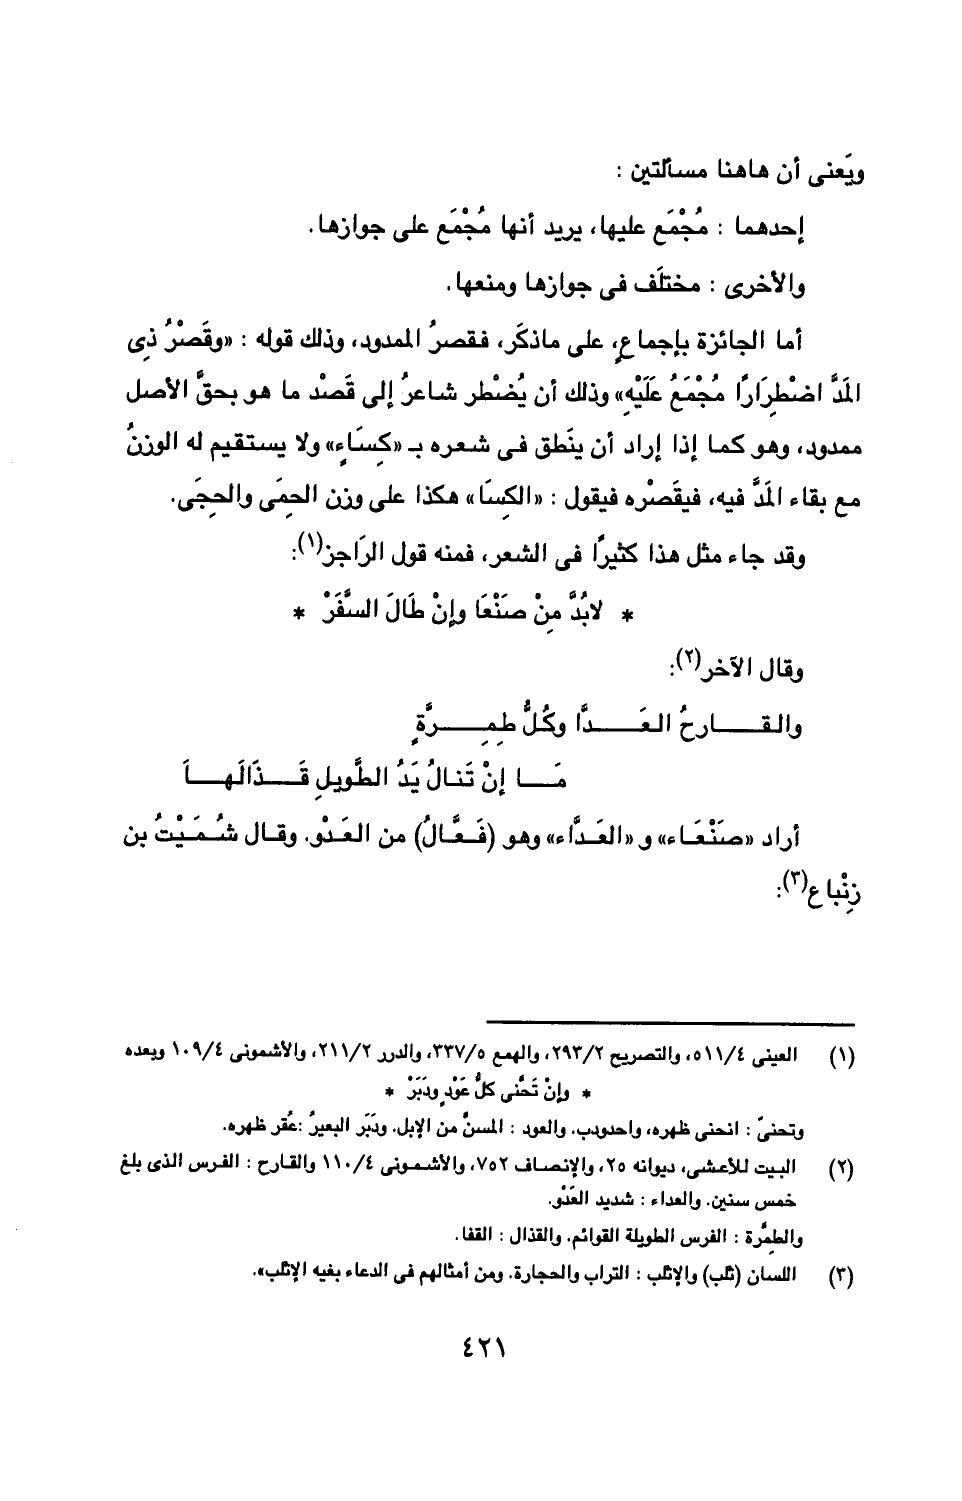 ويَعنى أن هاهنا مسألتين :
إحدهما : مُجْمَع عليها، يريد أنها مُجْمَع على جوازها.
والأخرى : مختلَف فى جوازها ومنعها.
أما الجائزة بإجماعٍ، على ماذكَر، فقصرُ الممدود، وذلك قوله : «وقَصْرُ ذِى
المَدَّ اضْطِرَارًا مُجْمَعُ عَلَيْهِ» وذلك أن يُضْطر شاعرُ إلى قَصْد ما هو بحقَّ الأصل
ممدود، وهو كما إذا إراد أن ينَطق فى شعره بـ «كِسَاءٍ» ولا يستقيم له الوزنُ
مع بقاء المَدَّ فيه، فيقَصْره فيقول : «الكِسَا» هكذا على وزن الحِمَى والحِجَى.
وقد جاء مثل هذا كثيرًا فى الشعر، فمنه قول الرَاجز(١):
* لابُدَّ مِنْ صَنْعَا وإنْ طَالَ السَّفَرْ *
وقال الآخر(٢):
والقـــارحُ العَـــدَّا وكُلُّ طِمِـــرَّةٍ
مَـــا إنْ تَنالُ يَدُ الطَّويلِ قَـــذَالَهـــاَ
أراد «صَنْعَاء» و «العَدَّاء» وهو (فَعَّالُ) من العَدْو. وقال شُمَيْتُ بن
زِنْباع(٣):
(١) العينى ٥١١/٤، والتصريح ٢٩٣/٢، والهمع ٣٣٧/٥، والدرر ٢١١/٢، والأشمونى ١٠٩/٤ وبعده
* وإنْ تَحَّنى كلُّ عَوْدٍ ودَبَرْ *
وتحنىّ : انحنى ظهره، واحدودب. والعود : المسنَّ من الإبل. ودَبَر البعيرُ :عُقر ظهره.
(٢) البيت للأعشى، ديوانه ٢٥، والإنصاف ٧٥٢، والأشمونى ١١٠/٤ والقارح : الفرس الذى بلغ
خمس سنين. والعداء : شديد العَدْو.
والطمَّرة : الفرس الطويلة القوائم. والقذال : القفا.
(٣) اللسان (ثلب) والإثلب : التراب والحجارة. ومن أمثالهم فى الدعاء بفيه الإثلب».
٤٢١